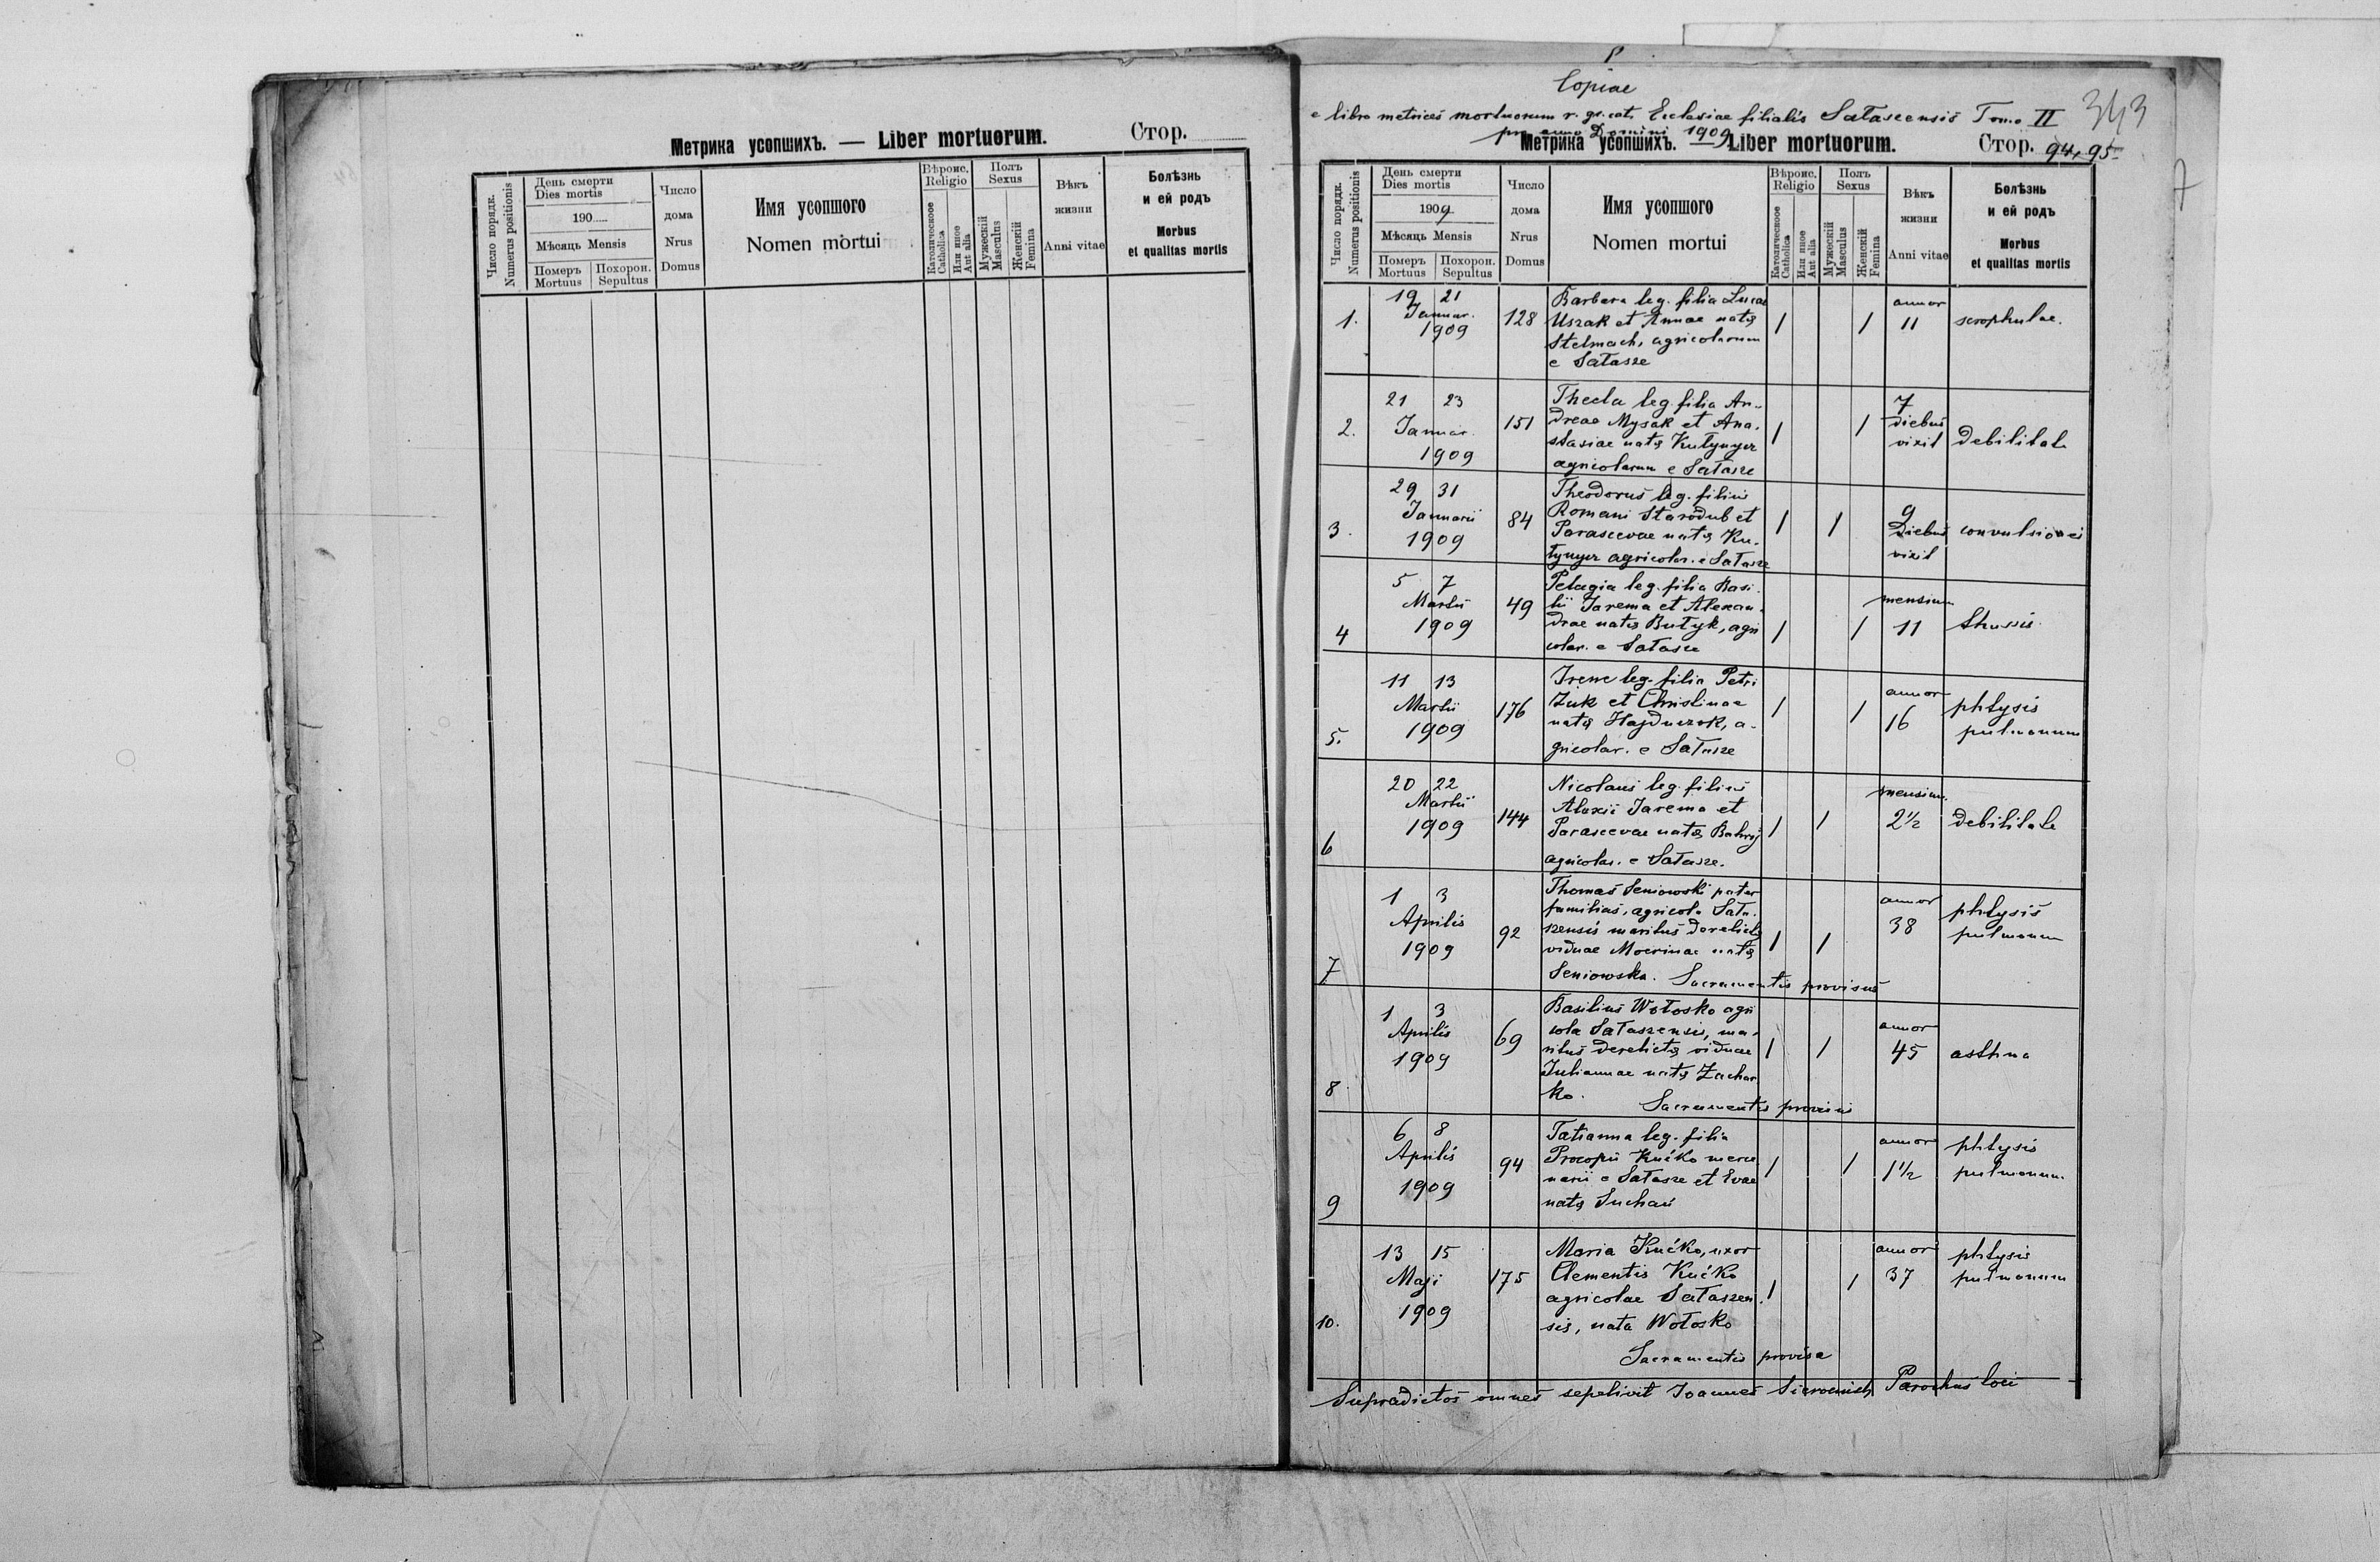 Метрика усопшихъ. — Liber mortuorum. Стор.
Число порядк. Numerus positionis
День смерти Dies mortis
190
Мѣсяць Mensis
Померъ Mortuus
Похорон. Sepultus
Число дома Nrus Domus
Имя усопшого
Nomen mortui
Вѣроис. Religio
Католическое Catholica
Или иное Aut alia
Полъ Sexus
Мужескій Masculus
Женскій Femina
Вѣкъ жизни Anni vitae
Болѣзнь и ей родъ
Morbus et qualitas mortis
Copiae
e libro metrices mortuorum r. gr. cat. Ecclesiae filialis Sałaszensis Tomo II 343
pro anno Domini 1909
Метрика усопшихъ. — Liber mortuorum. Стор. 94, 95
7
Число порядк. Numerus positionis
День смерти Dies mortis
1909
Мѣсяць Mensis
Померъ Mortuus
Похорон. Sepultus
Число дома Nrus Domus
Имя усопшого
Nomen mortui
Вѣроис. Religio
Католическое Catholica
Или иное Aut alia
Полъ Sexus
Мужескій Masculus
Женскій Femina
Вѣкъ жизни Anni vitae
Болѣзнь и ей родъ
Morbus et qualitas mortis
1. 19 21 Januar. 1909 128
Barbara leg. filia Lucae
Uszak et Annae natę
Stelmach, agricolarum
e Sałasze
1 1 annor 11 scrophulae.
2. 21 23 Januar. 1909 151
Thecla leg. filia An-
dreae Mysak et Ana-
stasiae natę Kułynycz
agricolarum e Sałasze
1 1 7 diebus vixit debilitate
3. 29 31 Januarii 1909 84
Theodorus leg. filius
Romani Starodub et
Parascevae natę Ku-
łynycz agricolar. e Sałasze
1 1 9 Diebus vixit convulsiones
4 5 7 Martii 1909 49
Pelagia leg. filia Basi-
lii Jarema et Alexan-
drae natę Butyk, agri
colar. e Sałasze
1 1 mensium 11 thussis
5. 11 13 Martii 1909 176
Irene leg. filia Petri
Żuk et Christinae
natę Hajduczok, a-
gricolar. e Sałasze
1 1 annor 16 phtysis pulmonum
6 20 22 Martii 1909 144
Nicolaus leg. filius
Alexii Jarema et
Parascevae natę
agricolar. e Sałasze.
1 1 mensium 2½ debilitate
7 1 3 Aprilis 1909 92
Thomas Seniowski pater
familias, agricola Sała-
szensis maritus derelictę
viduae Mocrinae natę
Seniowska. Sacramentis provisus
1 1 annor 38 phtysis pulmonum
8 1 3 Aprilis 1909 69
Basilius Wołosko agri
cola Sałaszensis, ma-
ritus derelictę viduae
Juliannae natę Zachar
ko. Sacramentis provisus
1 1 annor 45 asthma
9 6 8 Aprilis 1909 94
Tatianna leg. filia
Procopii Kućko merce
narii e Sałasze et Evae
natę Suchań
1 1 annor 1½ phtysis pulmonum
10. 13 15 Maji 1909 175
Maria Kućko, uxor
Clementis Kućko
agricolae Sałaszen-
sis, nata Wołosko
Sacramentis provisa
1 1 annor 37 phtysis pulmonum
Supradictos omnes sepelivit Joannes Parochus loci